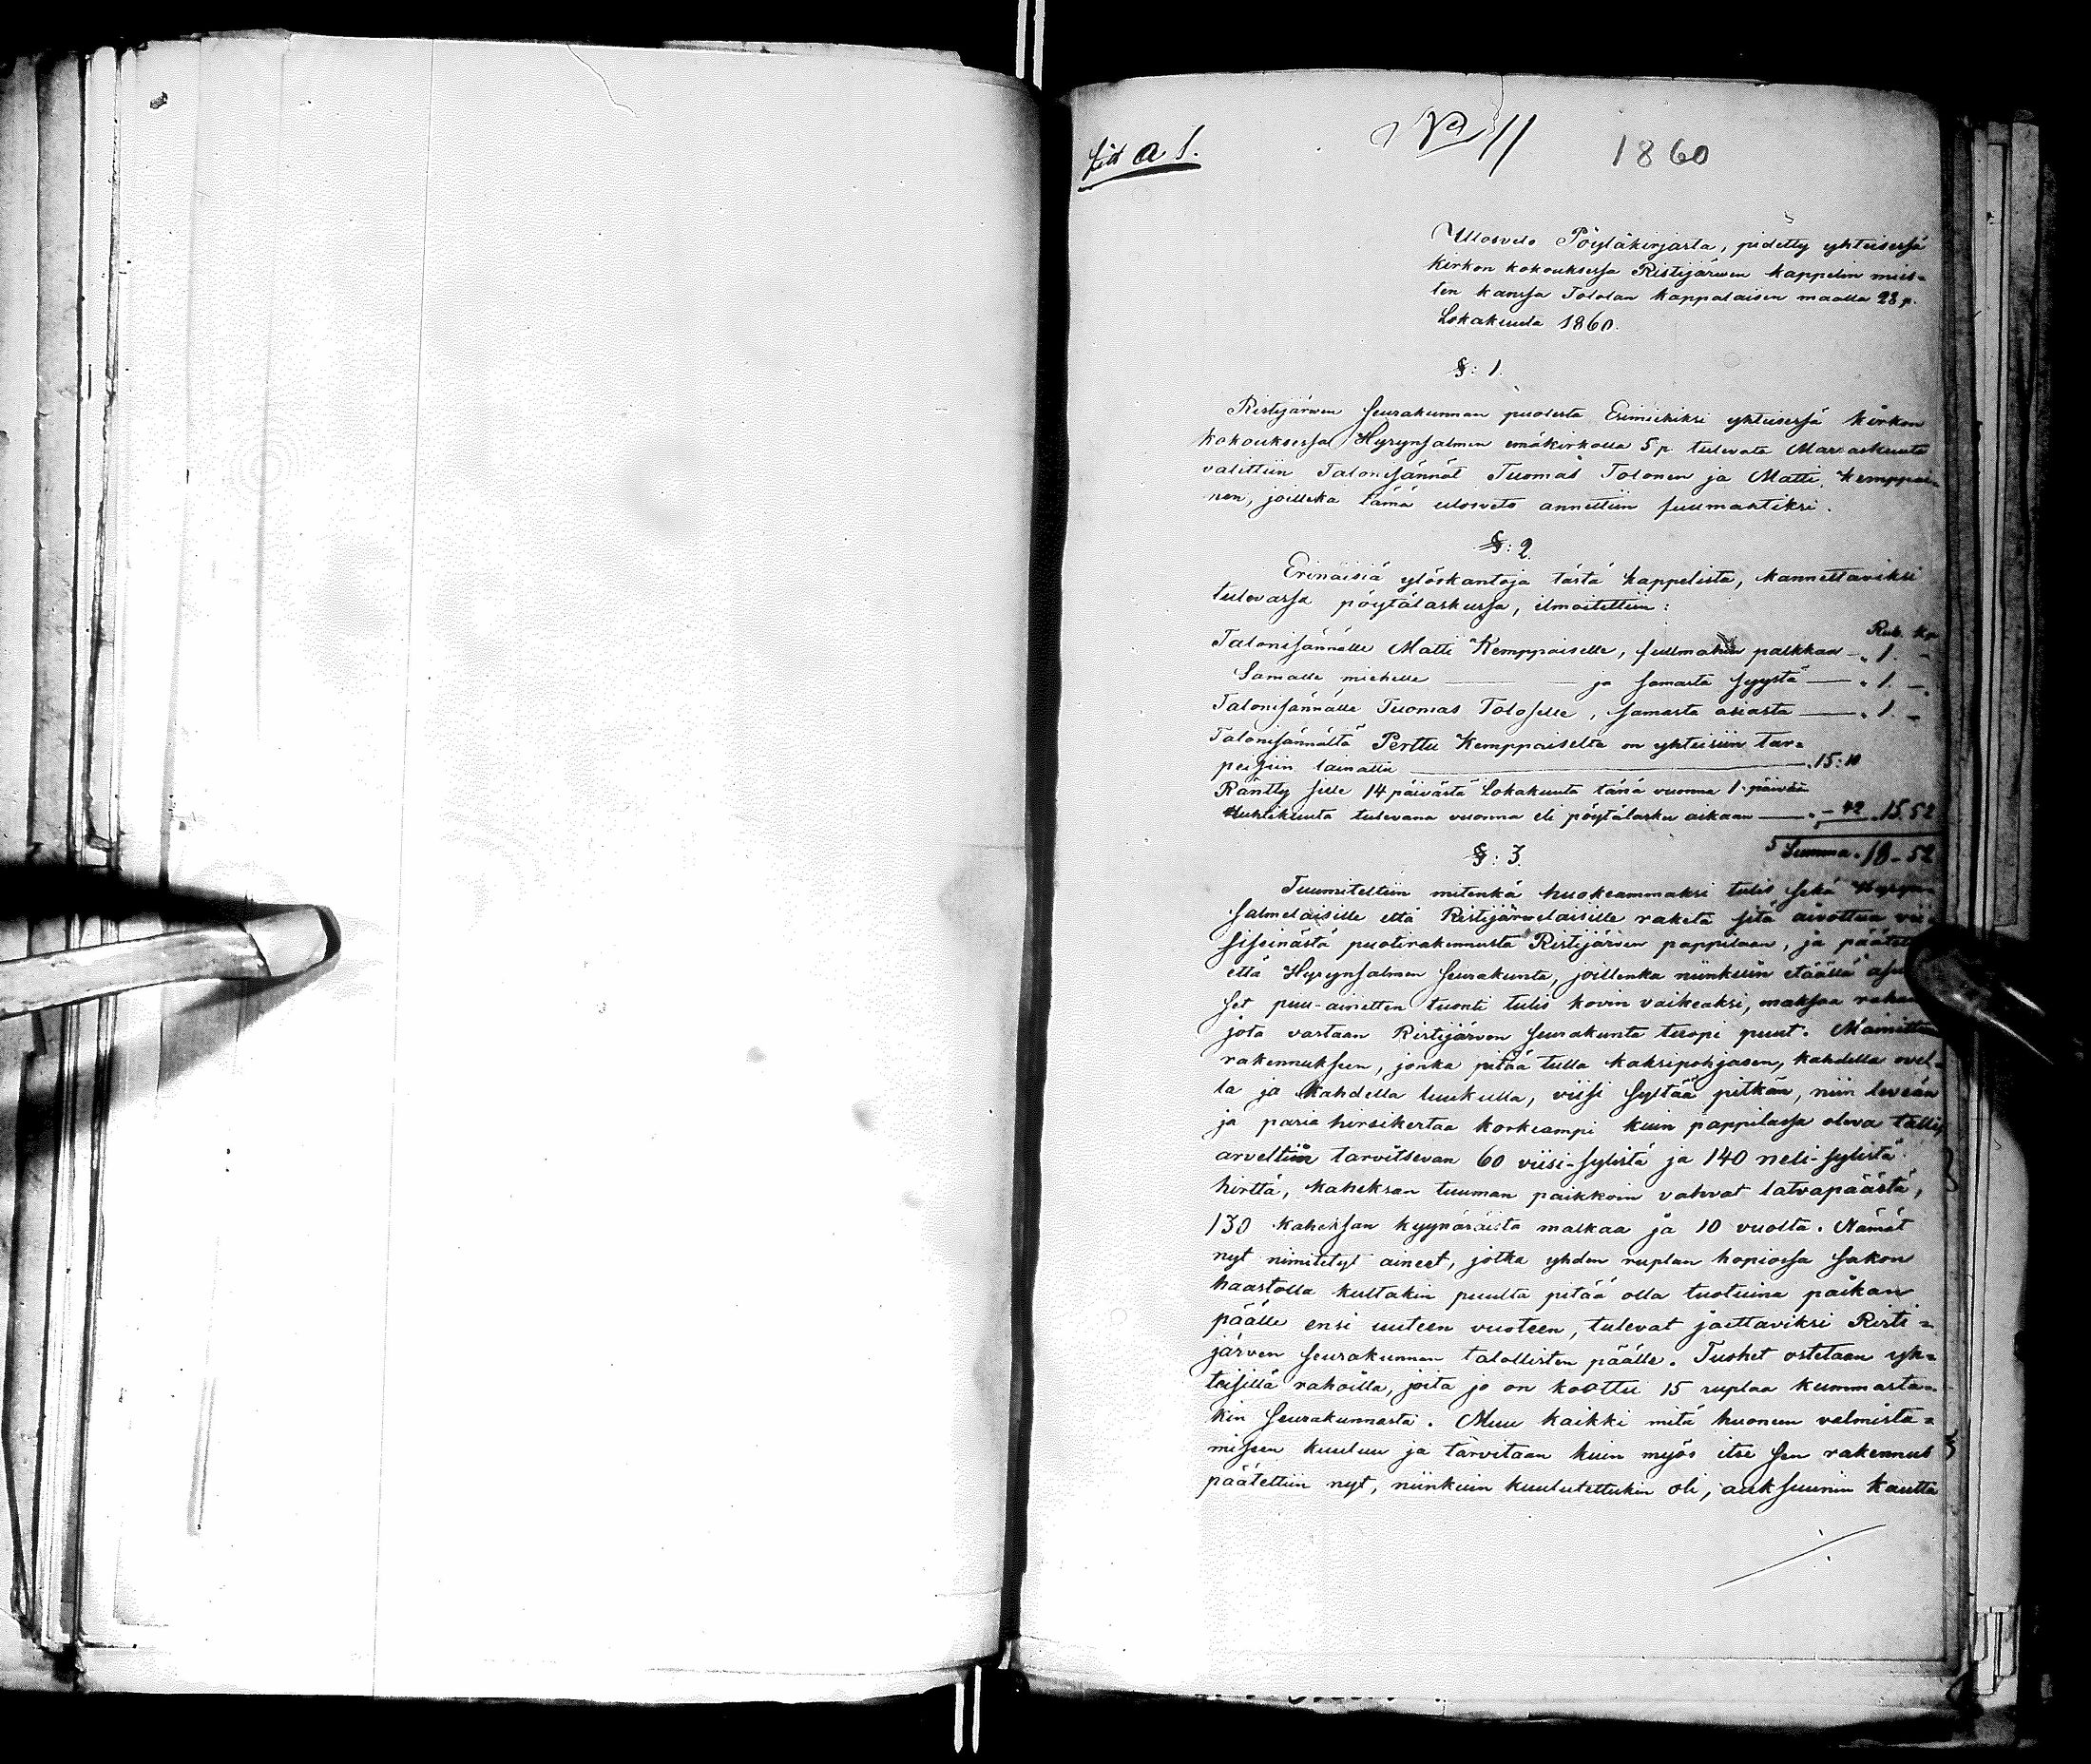 Litt a 1.
11
1860
Ulosveto Pöytäkirjasta, pidetty yhteisessä
kirkon kokouksessa Ristijärwen kappelin mies-
ten kanssa Tololan kappalaisen maalla 28 p.
Lokakuuta 1860.
§: 1.
Ristijärwen seurakunnan puolesta Esimiehiksi yhteisessä kirkon
kokouksessa Hyrynsalmen emäkirkolla 5 p. tulevata Marraskuuta
valittiin Talonisännät Tuomas Tolonen ja Matti Kemppai-
nen, joilleka tämä ulosveto annettiin fuumahtiksi.
§: 2.
Erinäisiä ylöskantoja tästä kappelista, kannettaviksi
tulevassa pöytälaskussa, ilmoitettiin:
Rub. Kp
Talonisännälle Matti Kemppaiselle, fullmahin palkkaa — „ 1. –
Samalle miehelle — — ja samasta syystä — „ 1. –
Talonisännälle Tuomas Toloselle, samasta asiasta — „ 1. –
Talonisännältä Perttu Kemppaiselta on yhteisiin tar-
peisiin lainattu — 15: 10
Räntty sille 14 päivästä Lokakuuta tänä vuonna 1. päivään
Huhtikuuta tulevana vuonna eli pöytälasku aikaan — „ – 42 „ 15. 52
Summa „ 18 – 52
§: 3.
Tuumiteltiin mitenkä huokeammaksi tulis sekä Hyryn-
salmelaisille että Ristijärwelaisille raketa sitä aivottua
puotirakennusta Ristijärven pappilaan, ja
että Hyrynsalmen seurakunta, joillenka niinkuin etäällä
set puu-ainetten tuonti tulis kovin vaikeaksi, maksaa
jota vastaan Ristijärven seurakunta tuopi puut. Mainittuun
rakennukseen, jonka pitää tulla kaksipohjasen, kahdella ovel-
la ja kahdella luukulla, viisi syltää pitkän, niin leveän
ja paria hirsikertaa korkeampi kuin pappilassa oleva talli,
arveltiin tarvitsevan 60 viisi-sylistä ja 140 neli-sylistä
hirttä, kaheksan tuuman paikkoin vahvat latvapäästä,
130 kaheksan kyynäräistä malkaa ja 10 vuolta. Nämät
nyt nimitetyt aineet, jotka yhden ruplan hopiossa sakon
haastolla kultakin puulta pitää olla tuotuina paikan
päälle ensi uuteen vuoteen, tulevat jaettaviksi Risti-
järven seurakunnan talollisten päälle. Tuohet ostetaan yh-
teisillä rahoilla, joita jo on koottu 15 ruplaa kummasta-
kin seurakunnasta. Muu kaikki mitä huoneen valmista-
miseen kuuluu ja tarvitaan kuin myös itse sen rakennus
päätettiin nyt, niinkuin kuulutettukin oli, auksuunin kautta